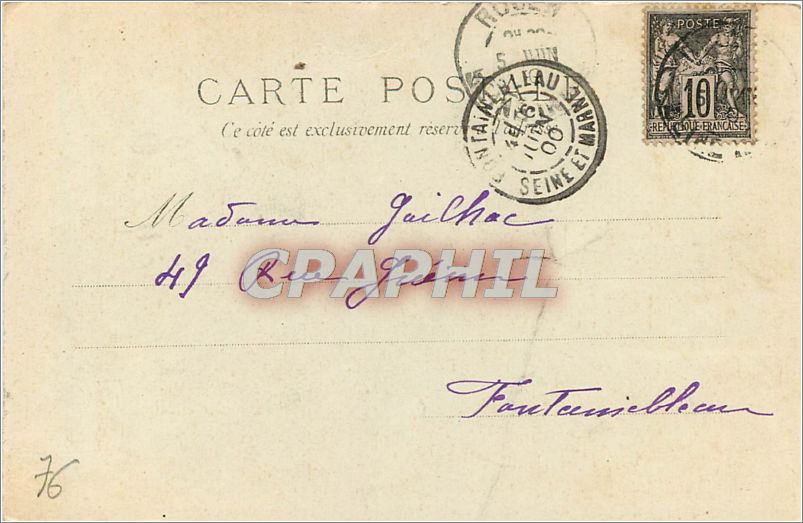 ROUEN
5 JUIN
POSTE
10
REPUBLIQUE FRANCAISE
CARTE POS
Ce côté est exclusivement réserv
FONTAINEBLEAU
6
JUIN
00
SEINE ET MARNE
Madame Gailhac
49 Rue
CPAPHIL
Fontainebleau
76